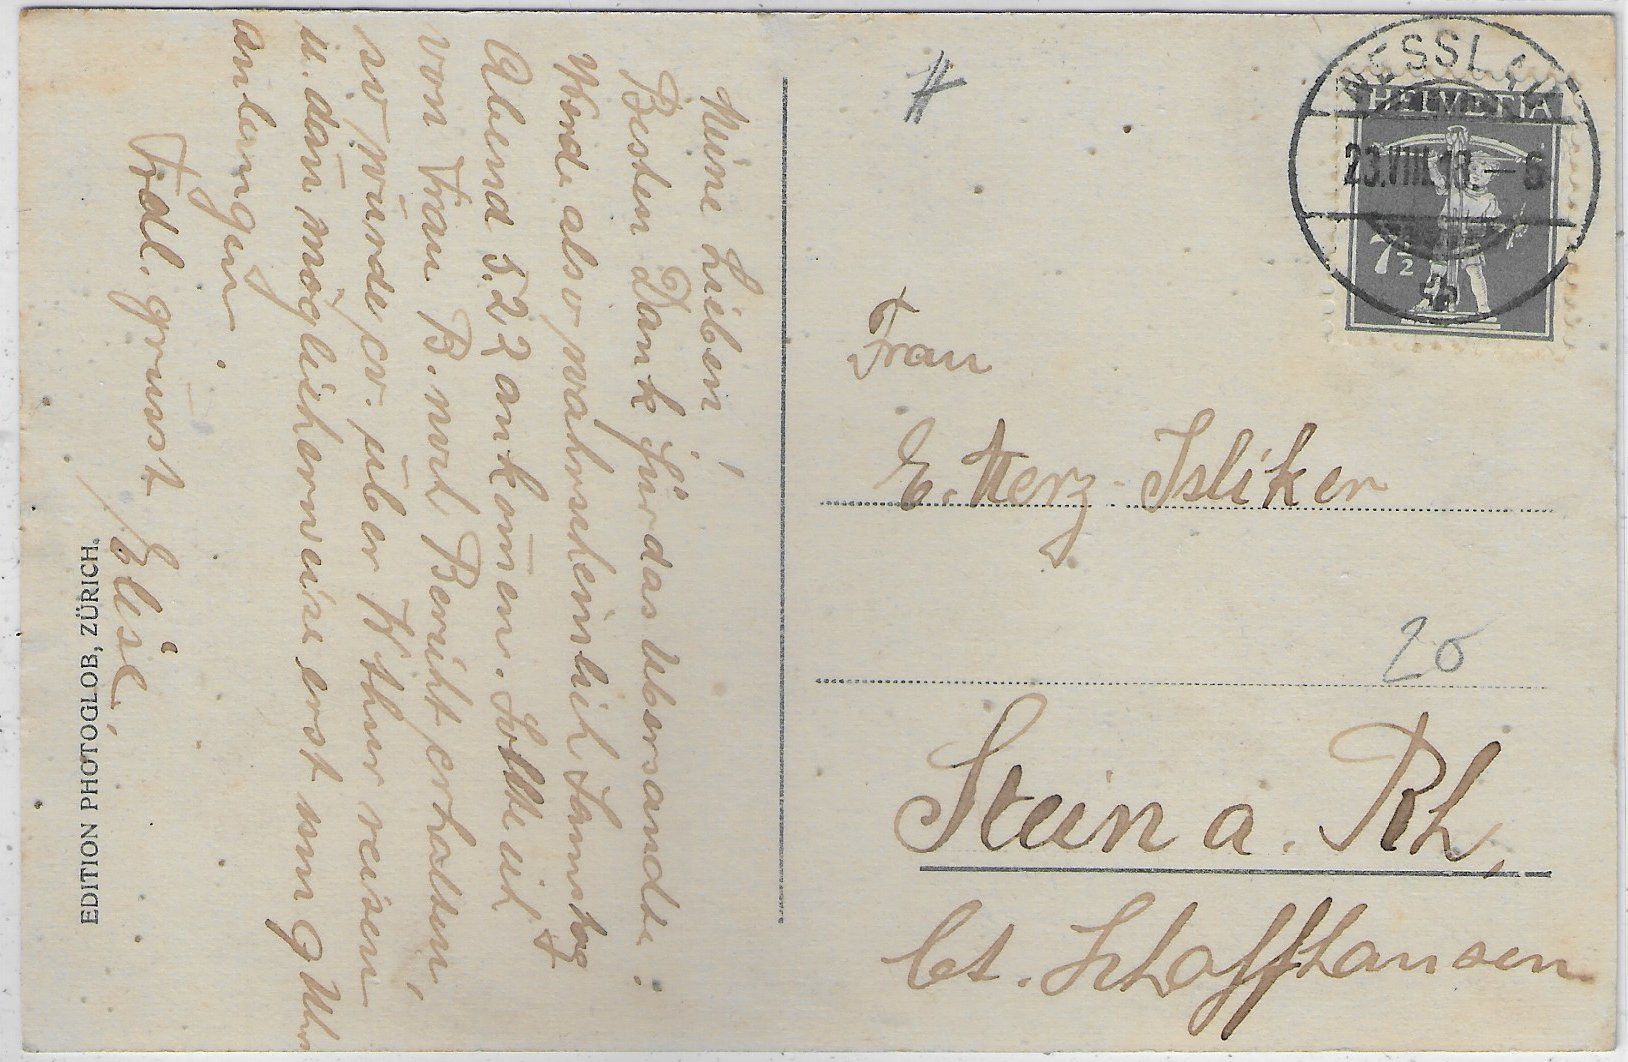 Meine Lieben!
Besten Dank für das Übersandte.
Werde also wahrscheinlich Samstag
Abend 5.22 ankom̄en. Sollte ich
von Frau B. noch Bericht erhalten,
so würde ev. über W'thur reisen
u. dan̄ möglicherweise erst um 9 Uhr
anlangen.
Frdl. grüsst
Elise.
EDITION PHOTOGLOB, ZÜRICH.
NESSLAU
23.VIII.18.–6
HELVETIA
7½
Frau
E. Herz-Isliker
20
Stein a. Rh.
Ct. Schaffhausen